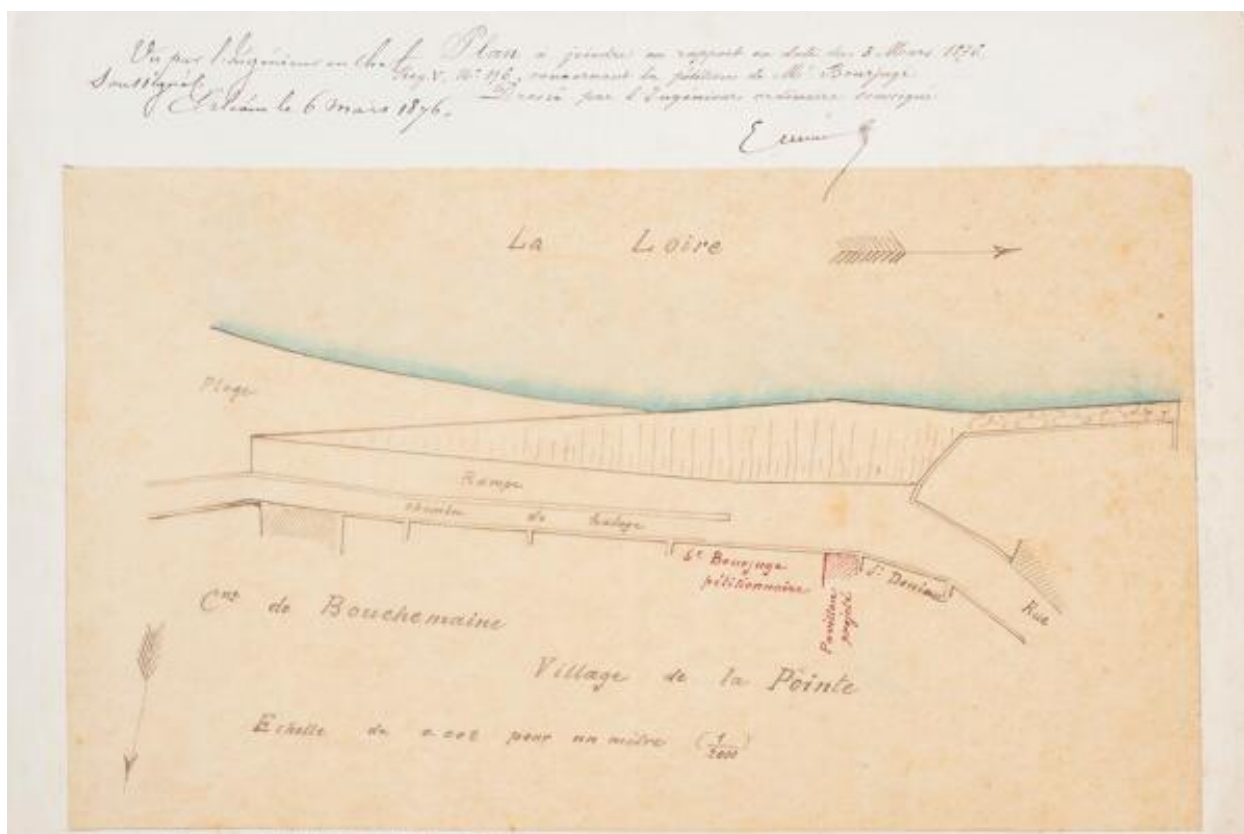 Vu par l'Ingénieur en Chef
Soussigné
Orléans le 6 Mars 1876.
Plan à joindre au rapport en date du 3 Mars 1876.
Reg. V. N° 116, concernant la pétition de Mr Bourjuge
Dressé par l'Ingénieur ordinaire soussigné
La Loire
Plage
Rampe
chemin de halage
Sr Bourjuge
pétitionnaire
Pavillon
projeté
Sr Doniau
Rue
Cne de Bouchemaine
Village de la Pointe
Echelle de 0.002 pour un mètre (1/2000)